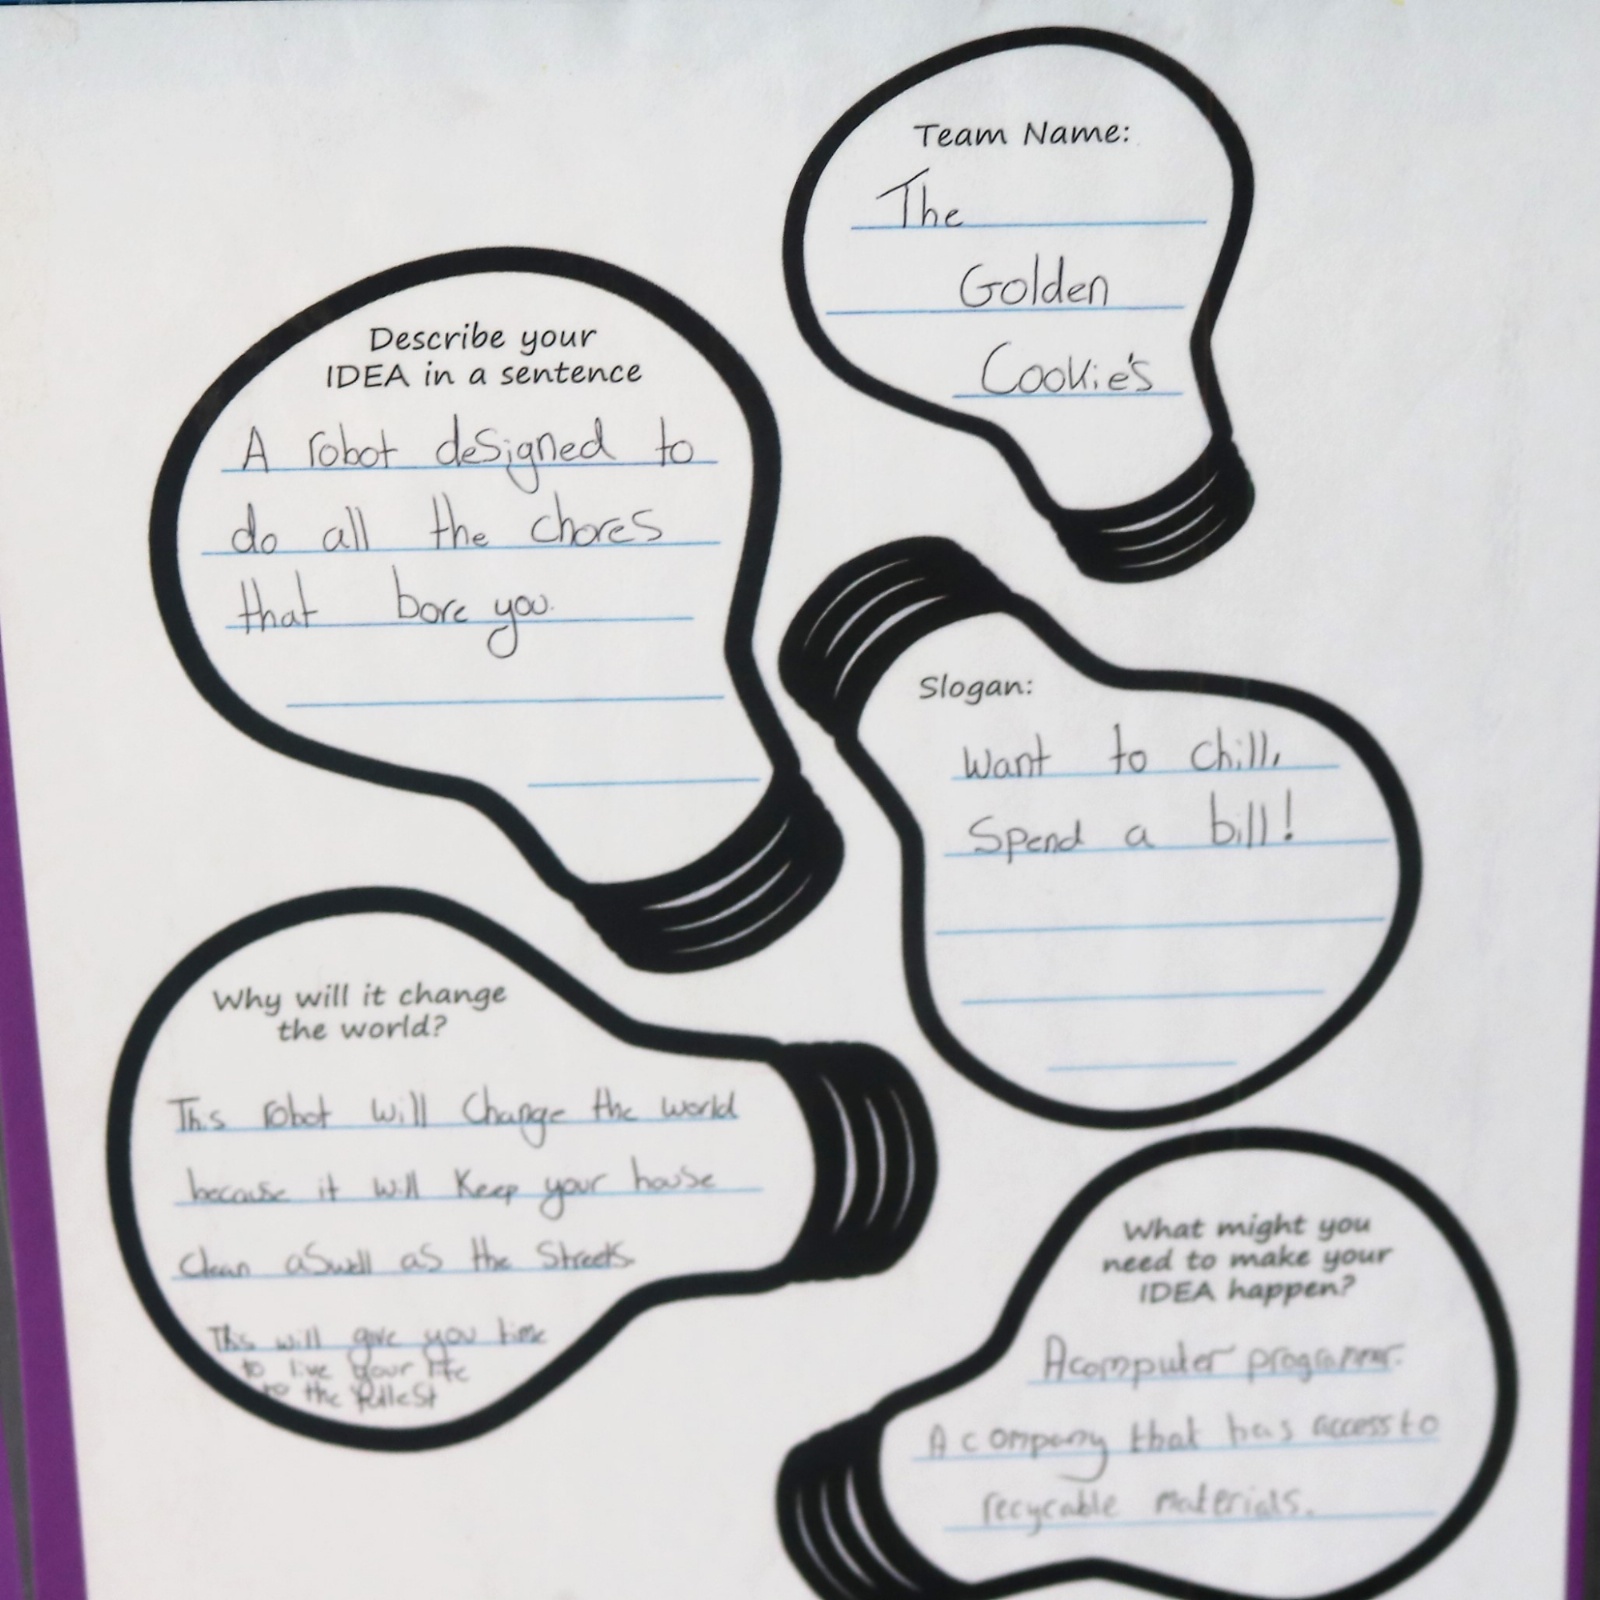 Team Name:
The
Golden
Cookie's
Describe your
IDEA in a sentence
A robot designed to
do all the chores
that bore you.
Slogan:
Want to chill,
Spend a bill!
Why will it change
the world?
This robot will Change the world
because it will Keep your house
Clean aswell as the Streets.
This will give you time
to live your life
to the fullest
What might you
need to make your
IDEA happen?
A computer programmer.
A company that has access to
recycable materials.